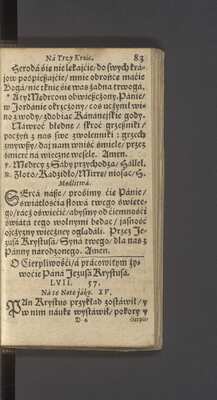 Ná Trzy Krole. 83
Herodá śię nie lękaycie/ do swych kra-
iow pośpieszaycie/ mnie obrońcę macie
Bogá/ nie tknie śię was żadna trwogá.
* A ty Mędrcom obwieszczony Pánie/
w Jordanie okrzczony/ coś uczynił wi-
no z wody/ zdobiąc Kánáneyskie gody.
Náwroć błędne/ skroć grzeszniki/
poczyń z nas swe zwolenniki: grzech
zmywszy/ day nam wniść śmiele/ przez
śmierć ná wieczne wesele. Amen.
v. Mędrcy z Sáby przychodzą/ Hállel.
R. Złoto/ Kádzidło/ Mirrę/ niosąc/ H.
Modlitwá.
SErcá násze/ prośimy ćie Pánie/
świátłośćią słowá twego święte-
go/ rácz oświećić/ ábysmy od ćiemnośći
świátá tego wolnymi będąc/ iásność
oyczyzny wieczney oglądáli. Przez Je-
zusá Krystusá/ Syná twego/ dla nas z
Pánny národzonego. Amen.
O Cierpliwośći/ á prácowitym ży-
woćie Páná Jezusá Krystusá.
LVII. 57.
Ná tę Notę iáko. XV.
PAn Krystus przykład zostáwił/ y
w nim náukę wystáwił/ pokory y
D 6 ćierpli-